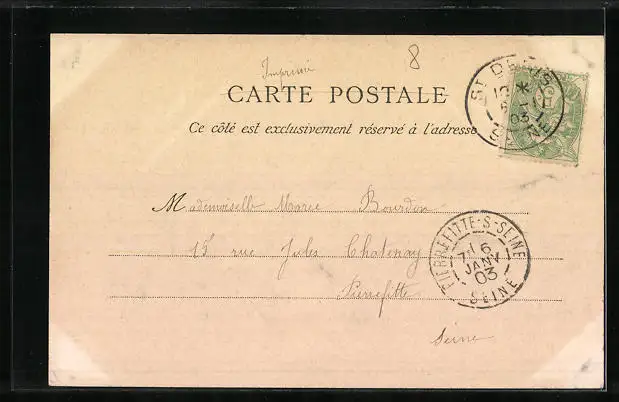 8
Imprimé
CARTE POSTALE
Ce côté est exclusivement réservé à l'adresse
ST DENIS
03
SEINE
Mademoiselle Marie Bourdon
15 rue Jules Chatenay
Pierrefitte
Seine
PIERREFITTE-S-SEINE
16
JANV
03
SEINE